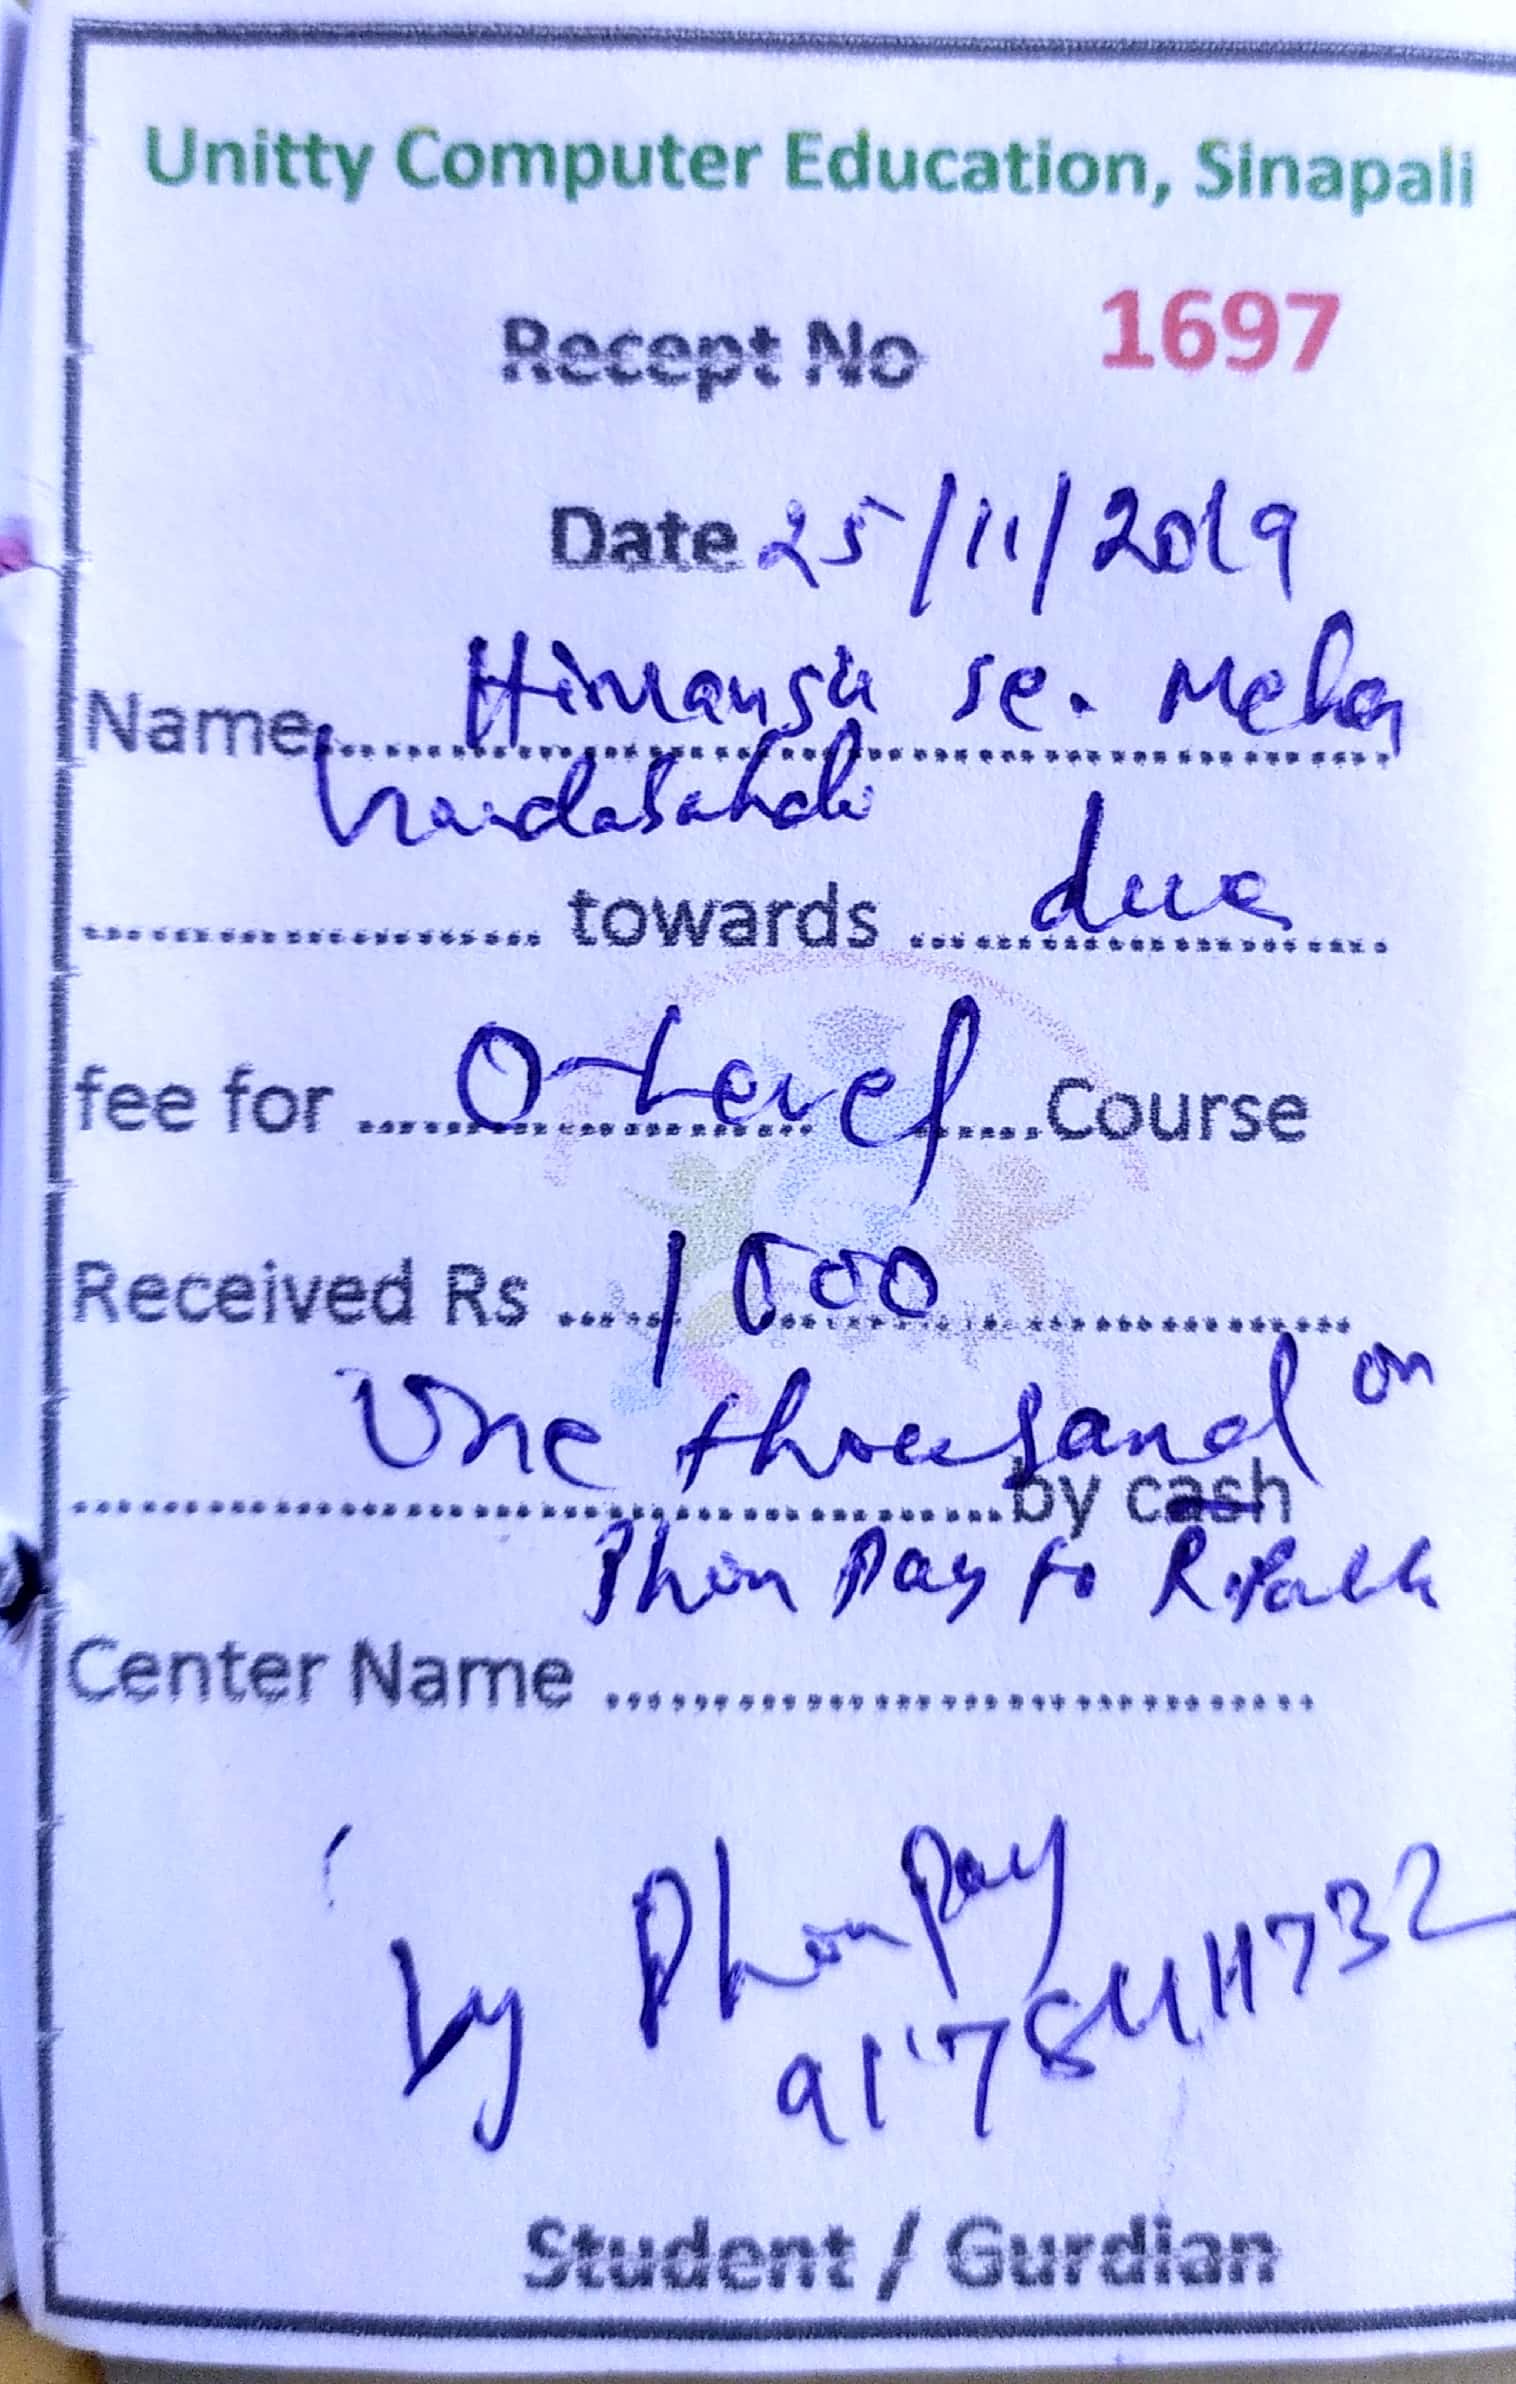 Unitty Computer Education, Sinapali
Recept No 1697
Date 25/11/2019
Name Himansu se. Meher
towards due
fee for O-Level Course
Received Rs 1000
One thousand on
by cash
Phon Pay to
Center Name
by Phon Pay
Student / Gurdian